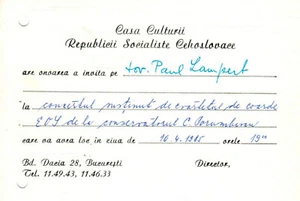 Casa Culturii
Republicii Socialiste Cehoslovace
are onoarea a invita pe tov. Paul Lampert
la concertul susținut de cvartetul de coarde
de la conservatorul C. Porumbescu
care va avea loc în ziua de 16.4.1985 orele 19⁰⁰
Bd. Dacia 28, București
Director,
Tel. 11.49.43, 11.46.33